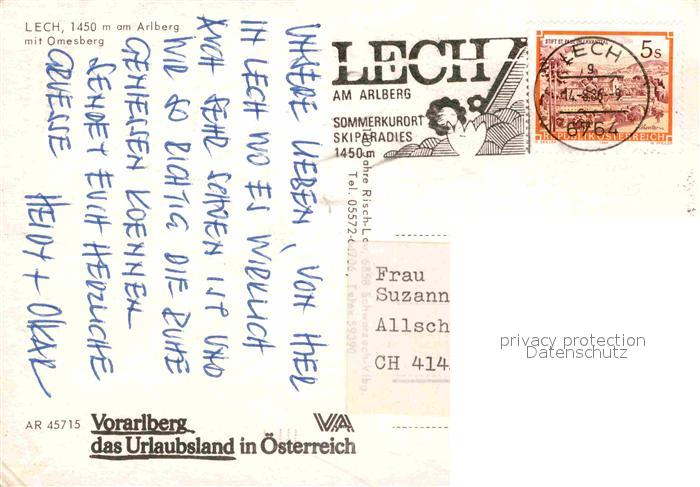 LECH, 1450 m am Arlberg
mit Omesberg
UNSERE LIEBEN, VON HIER
IN LECH WO ES WIRKLICH
AUCH SEHR SCHOEN IST UND
WIR SO RICHTIG DIE RUHE
GENIESSEN KOENNEN
SENDET EUCH HERZLICHE
GRUESSE
HEIDY + OSKAR
LECH
AM ARLBERG
SOMMERKURORT
SKIPARADIES
1450 m
STIFT ST. PAUL IM LAVANTTAL
5 S
REPUBLIK ÖSTERREICH
LECH
6764
Risch-Lau, 6858 Schwarzach-Vlbg.
Tel. 05572-
Telex 59390
Frau
Suzann
Allsch
CH 414
privacy protection
Datenschutz
AR 45715
Vorarlberg
das Urlaubsland in Österreich
VA